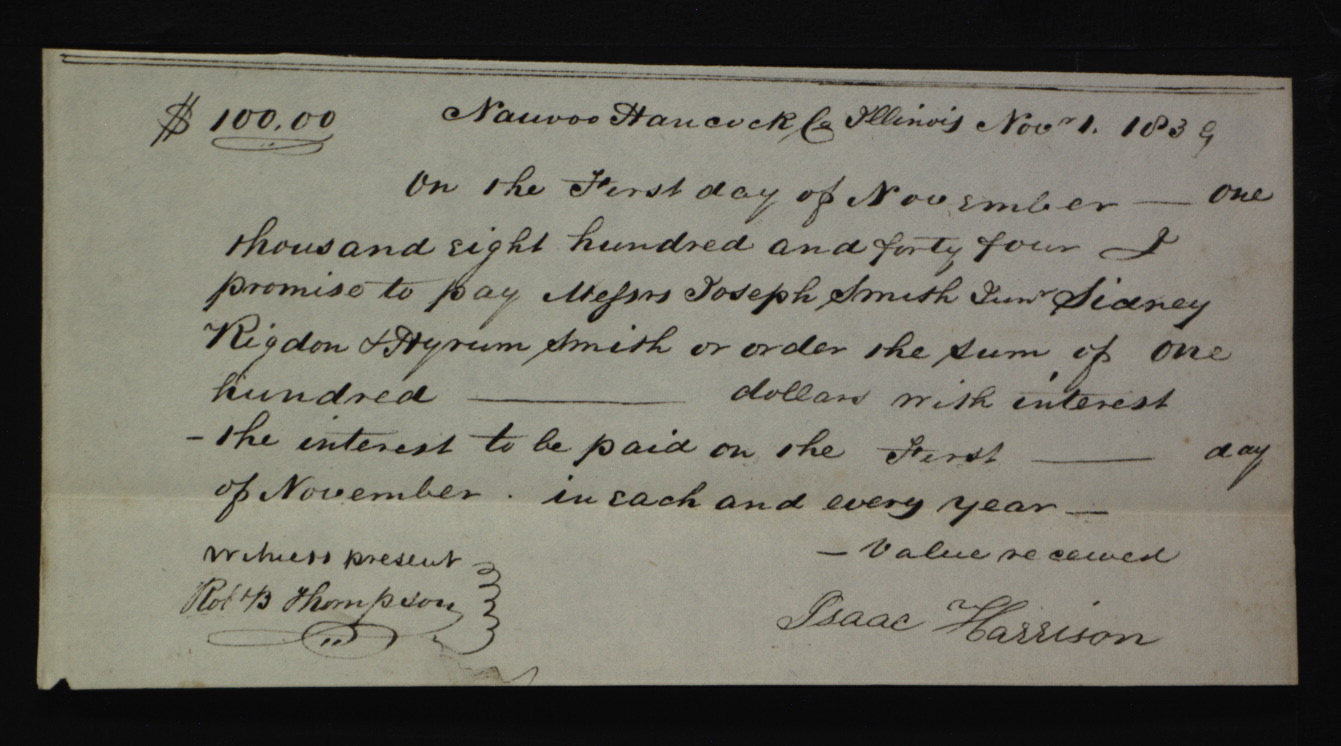 $100.00 Nauvoo Hancock Co Illinois Novr 1. 1839
On the First day of November — One
thousand eight hundred and forty four I
promise to pay Messrs Joseph Smith Junr Sidney
Rigdon & Hyrum Smith or order the sum of One
hundred ——— dollars with interest
- the interest to be paid on the First —— day
of November. in each and every year —
— Value received
Witness present
Robt B Thompson
Isaac Harrison